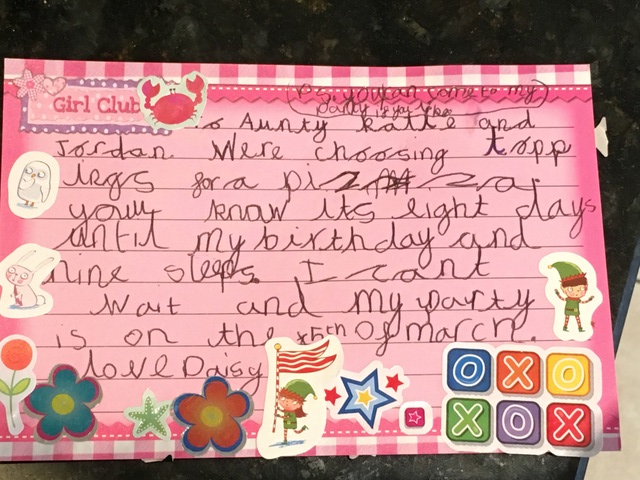 (P.S. you can come to my
party if you like)
Girl Club
to Aunty Katie and
Jordan. Were choosing topp
ings for a pizza.
you know its eight days
until my birthday and
nine sleeps. I cant
wait and my party
is on the 5th of march.
love Daisy
OXO
XOX